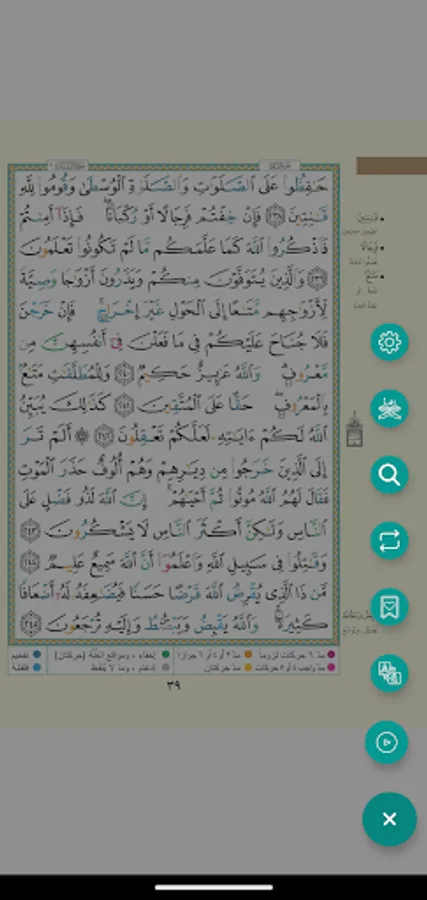 حَـٰفِظُوا۟ عَلَى ٱلصَّلَوَٰتِ وَٱلصَّلَوٰةِ ٱلْوُسْطَىٰ وَقُومُوا۟ لِلَّهِ
قَـٰنِتِينَ ٢٣٨ فَإِنْ خِفْتُمْ فَرِجَالًا أَوْ رُكْبَانًا ۖ فَإِذَآ أَمِنتُمْ
فَٱذْكُرُوا۟ ٱللَّهَ كَمَا عَلَّمَكُم مَّا لَمْ تَكُونُوا۟ تَعْلَمُونَ
٢٣٩ وَٱلَّذِينَ يُتَوَفَّوْنَ مِنكُمْ وَيَذَرُونَ أَزْوَٰجًا وَصِيَّةً
لِّأَزْوَٰجِهِم مَّتَـٰعًا إِلَى ٱلْحَوْلِ غَيْرَ إِخْرَاجٍ ۚ فَإِنْ خَرَجْنَ
فَلَا جُنَاحَ عَلَيْكُمْ فِى مَا فَعَلْنَ فِىٓ أَنفُسِهِنَّ مِن
مَّعْرُوفٍ ۗ وَٱللَّهُ عَزِيزٌ حَكِيمٌ ٢٤٠ وَلِلْمُطَلَّقَـٰتِ مَتَـٰعٌۢ
بِٱلْمَعْرُوفِ ۖ حَقًّا عَلَى ٱلْمُتَّقِينَ ٢٤١ كَذَٰلِكَ يُبَيِّنُ
ٱللَّهُ لَكُمْ ءَايَـٰتِهِۦ لَعَلَّكُمْ تَعْقِلُونَ ٢٤٢ ۞ أَلَمْ تَرَ
إِلَى ٱلَّذِينَ خَرَجُوا۟ مِن دِيَـٰرِهِمْ وَهُمْ أُلُوفٌ حَذَرَ ٱلْمَوْتِ
فَقَالَ لَهُمُ ٱللَّهُ مُوتُوا۟ ثُمَّ أَحْيَـٰهُمْ ۚ إِنَّ ٱللَّهَ لَذُو فَضْلٍ عَلَى
ٱلنَّاسِ وَلَـٰكِنَّ أَكْثَرَ ٱلنَّاسِ لَا يَشْكُرُونَ ٢٤٣
وَقَـٰتِلُوا۟ فِى سَبِيلِ ٱللَّهِ وَٱعْلَمُوٓا۟ أَنَّ ٱللَّهَ سَمِيعٌ عَلِيمٌ ٢٤٤
مَّن ذَا ٱلَّذِى يُقْرِضُ ٱللَّهَ قَرْضًا حَسَنًا فَيُضَـٰعِفَهُۥ لَهُۥٓ أَضْعَافًا
كَثِيرَةً ۚ وَٱللَّهُ يَقْبِضُ وَيَبْصُۜطُ وَإِلَيْهِ تُرْجَعُونَ ٢٤٥
مدّ ٦ حركات لزوماً مدّ ٢ أو ٤ أو ٦ جوازاً إخفاء ، ومواقع الغنّة (حركتان) تفخيم
مدّ واجب ٤ أو ٥ حركات مدّ حركتان إدغام ، وما لا يُلفظ قلقلة
٣٩